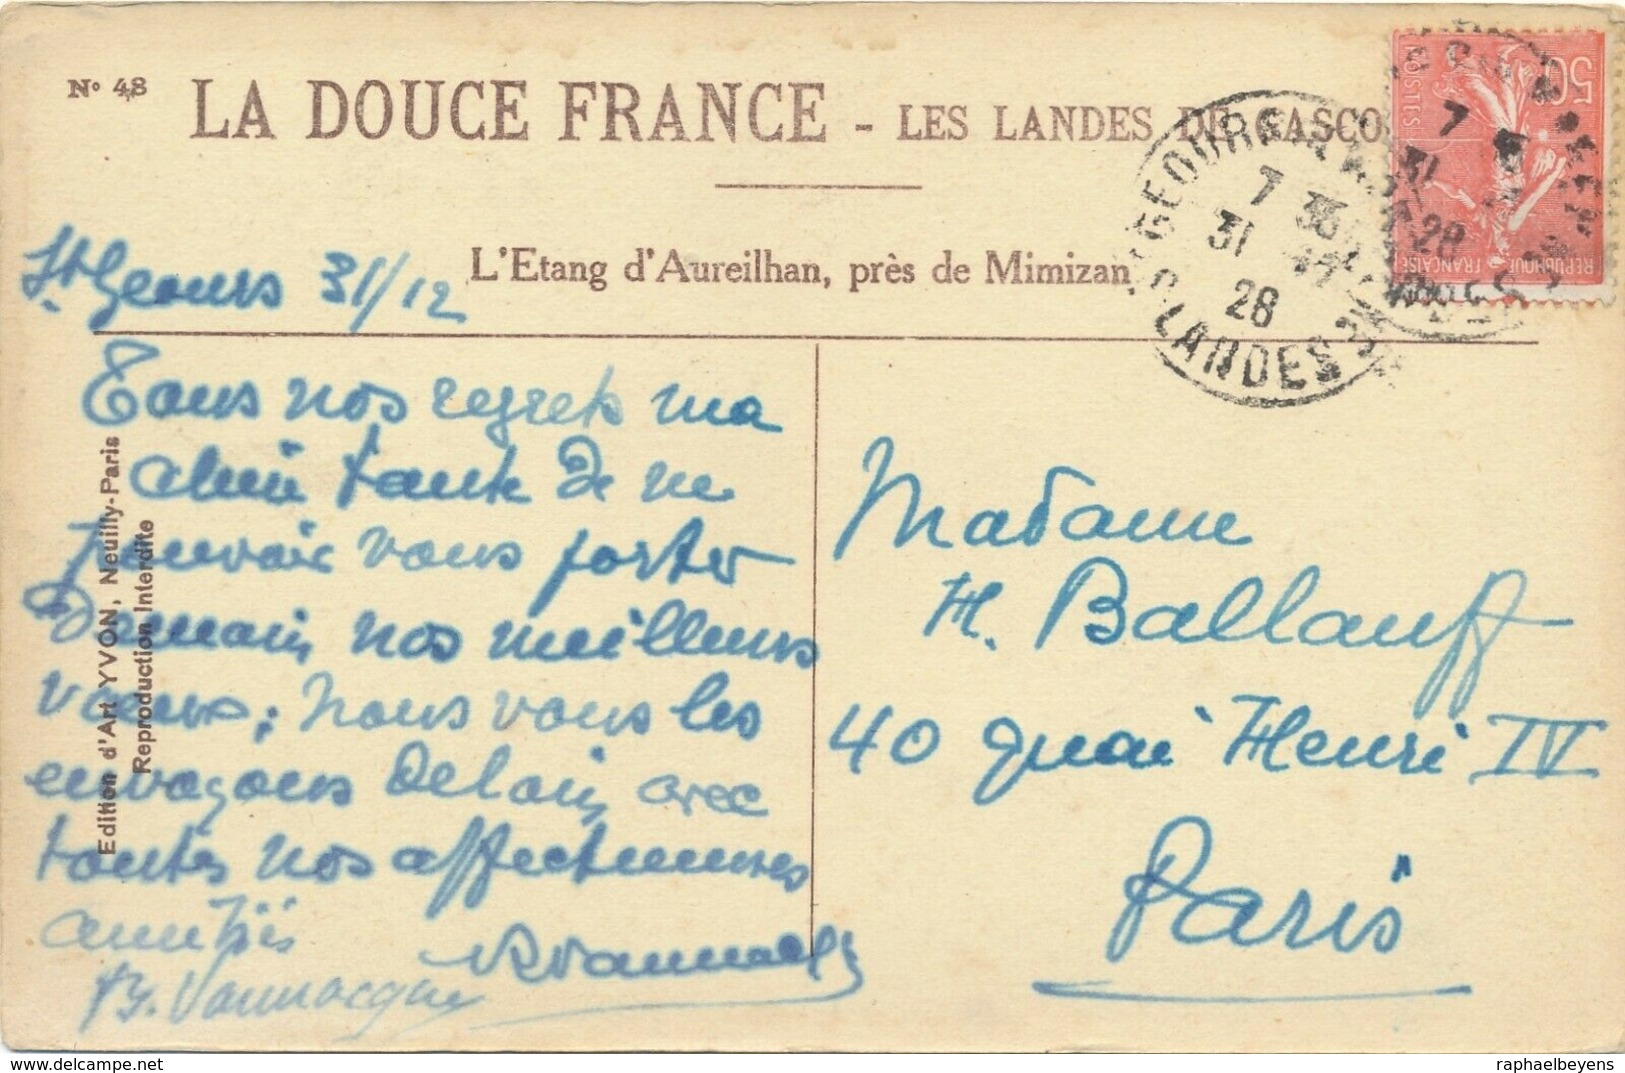 N° 48 LA DOUCE FRANCE - LES LANDES DE GASCO
L'Etang d'Aureilhan, près de Mimizan
St Geours 31/12
Tous nos regrets ma
chère tante de ne
pouvoir vous porter
demain nos meilleurs
vœux; nous vous les
envoyons de loin avec
toutes nos affectueuses
amitiés
Edition d'Art YVON, Neuilly-Paris
Reproduction Interdite
Madame
H. Ballauff
40 quai Henri IV
Paris
GEOURS
7
31
28
LANDES
50
POSTES
REPUBLIQUE
FRANÇAISE
7
31
28
delcampe.net
raphaelbeyens